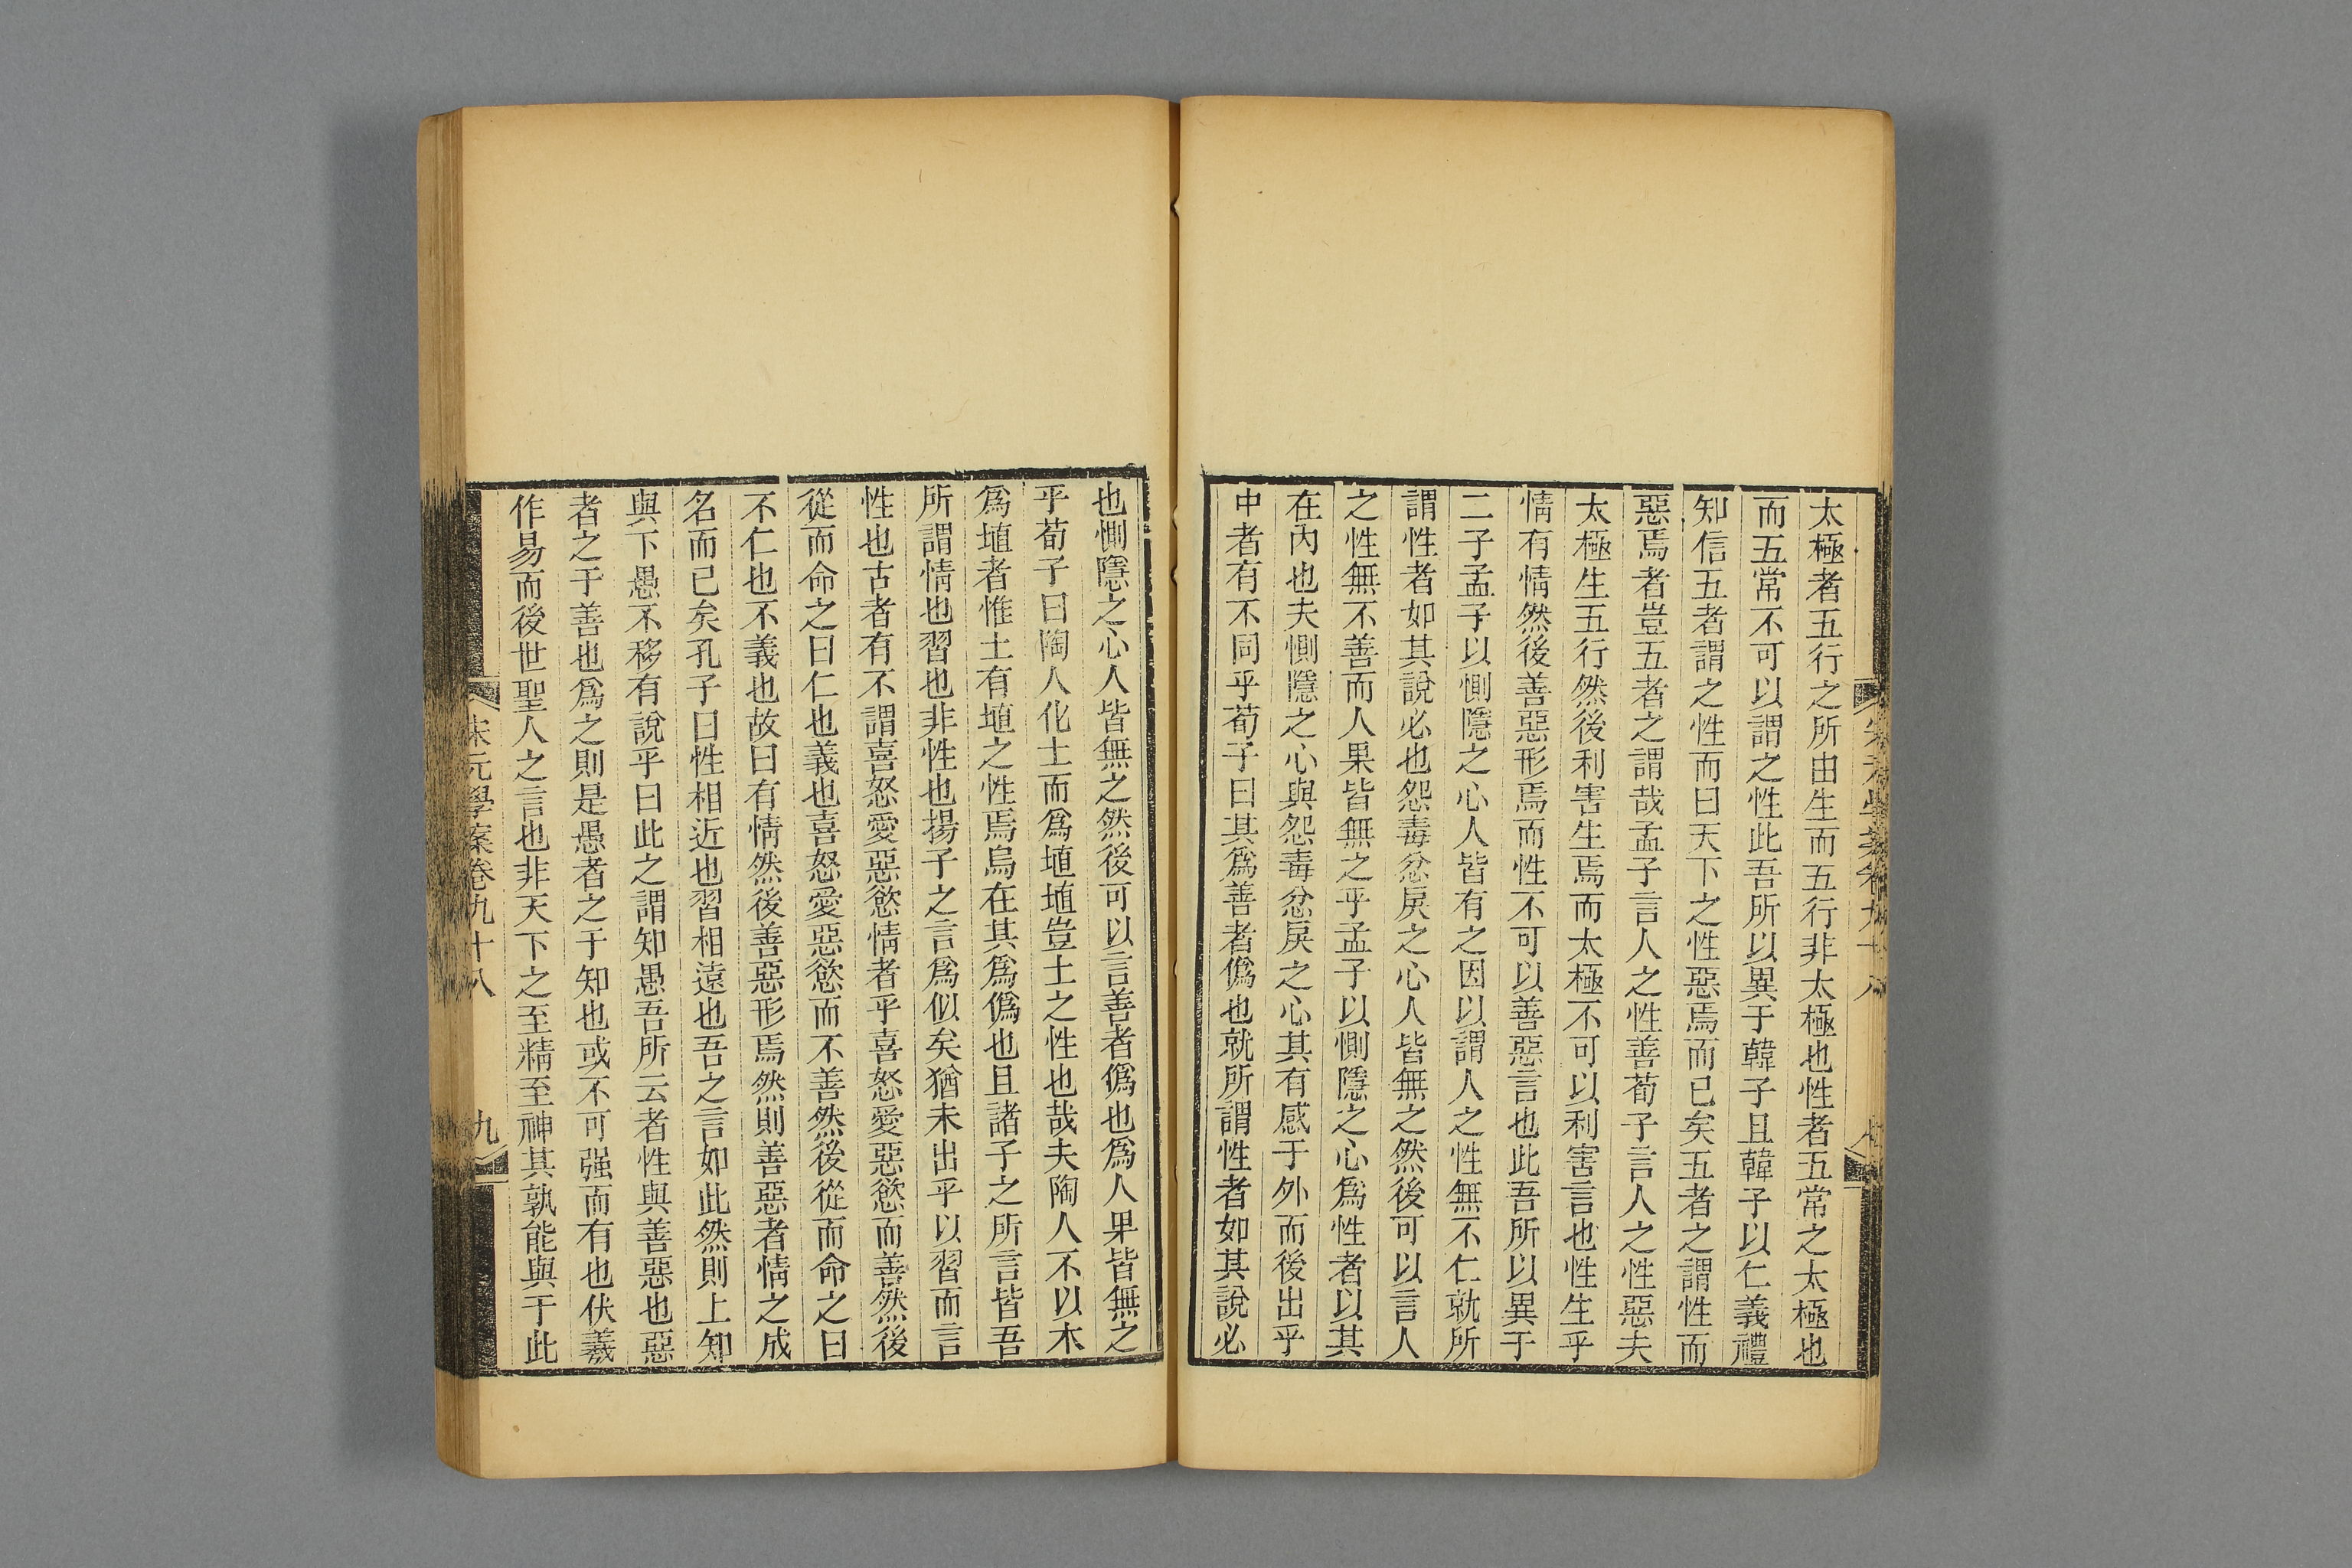 太極者五行之所由生而五行非太極也性者五常之太極也
而五常不可以謂之性此吾所以異于韓子且韓子以仁義禮
知信五者謂之性而曰天下之性惡焉而已矣五者之謂性而
惡焉者豈五者之謂哉孟子言人之性善荀子言人之性惡夫
太極生五行然後利害生焉而太極不可以利害言也性生乎
情有情然後善惡形焉而性不可以善惡言也此吾所以異于
二子孟子以惻隱之心人皆有之因以謂人之性無不仁就所
謂性者如其說必也怨毒忿戾之心人皆無之然後可以言人
之性無不善而人果皆無之乎孟子以惻隱之心爲性者以其
在內也夫惻隱之心與怨毒忿戾之心其有感于外而後出乎
中者有不同乎荀子曰其爲善者僞也就所謂性者如其說必
也惻隱之心人皆無之然後可以言善者僞也爲人果皆無之
乎荀子曰陶人化土而爲埴埴豈土之性也哉夫陶人不以木
爲埴者惟土有埴之性焉烏在其爲僞也且諸子之所言皆吾
所謂情也習也非性也揚子之言爲似矣猶未出乎以習而言
性也古者有不謂喜怒愛惡慾情者乎喜怒愛惡慾而善然後
從而命之曰仁也義也喜怒愛惡慾而不善然後從而命之曰
不仁也不義也故曰有情然後善惡形焉然則善惡者情之成
名而已矣孔子曰性相近也習相遠也吾之言如此然則上知
與下愚不移有說乎曰此之謂知愚吾所云者性與善惡也惡
者之于善也爲之則是愚者之于知也或不可强而有也伏羲
作易而後世聖人之言也非天下之至精至神其孰能與于此
宋元學案卷九十八
九